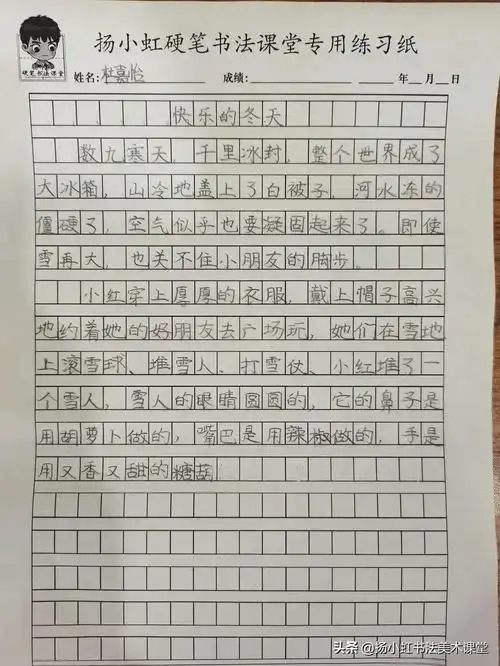 扬小虹硬笔书法课堂专用练习纸
硬笔书法课堂
姓名：杜嘉怡 成绩： 年 月 日
快乐的冬天
数九寒天，千里冰封，整个世界成了
大冰箱，山冷地盖上了白被子，河水冻的
僵硬了，空气似乎也要凝固起来了。即使
雪再大，也关不住小朋友的脚步。
小红穿上厚厚的衣服，戴上帽子高兴
地约着她的好朋友去广场玩，她们在雪地
上滚雪球、堆雪人、打雪仗、小红堆了一
个雪人，雪人的眼睛圆圆的，它的鼻子是
用胡萝卜做的，嘴巴是用辣椒做的，手是
用又香又甜的糖葫
头条 @扬小虹书法美术课堂